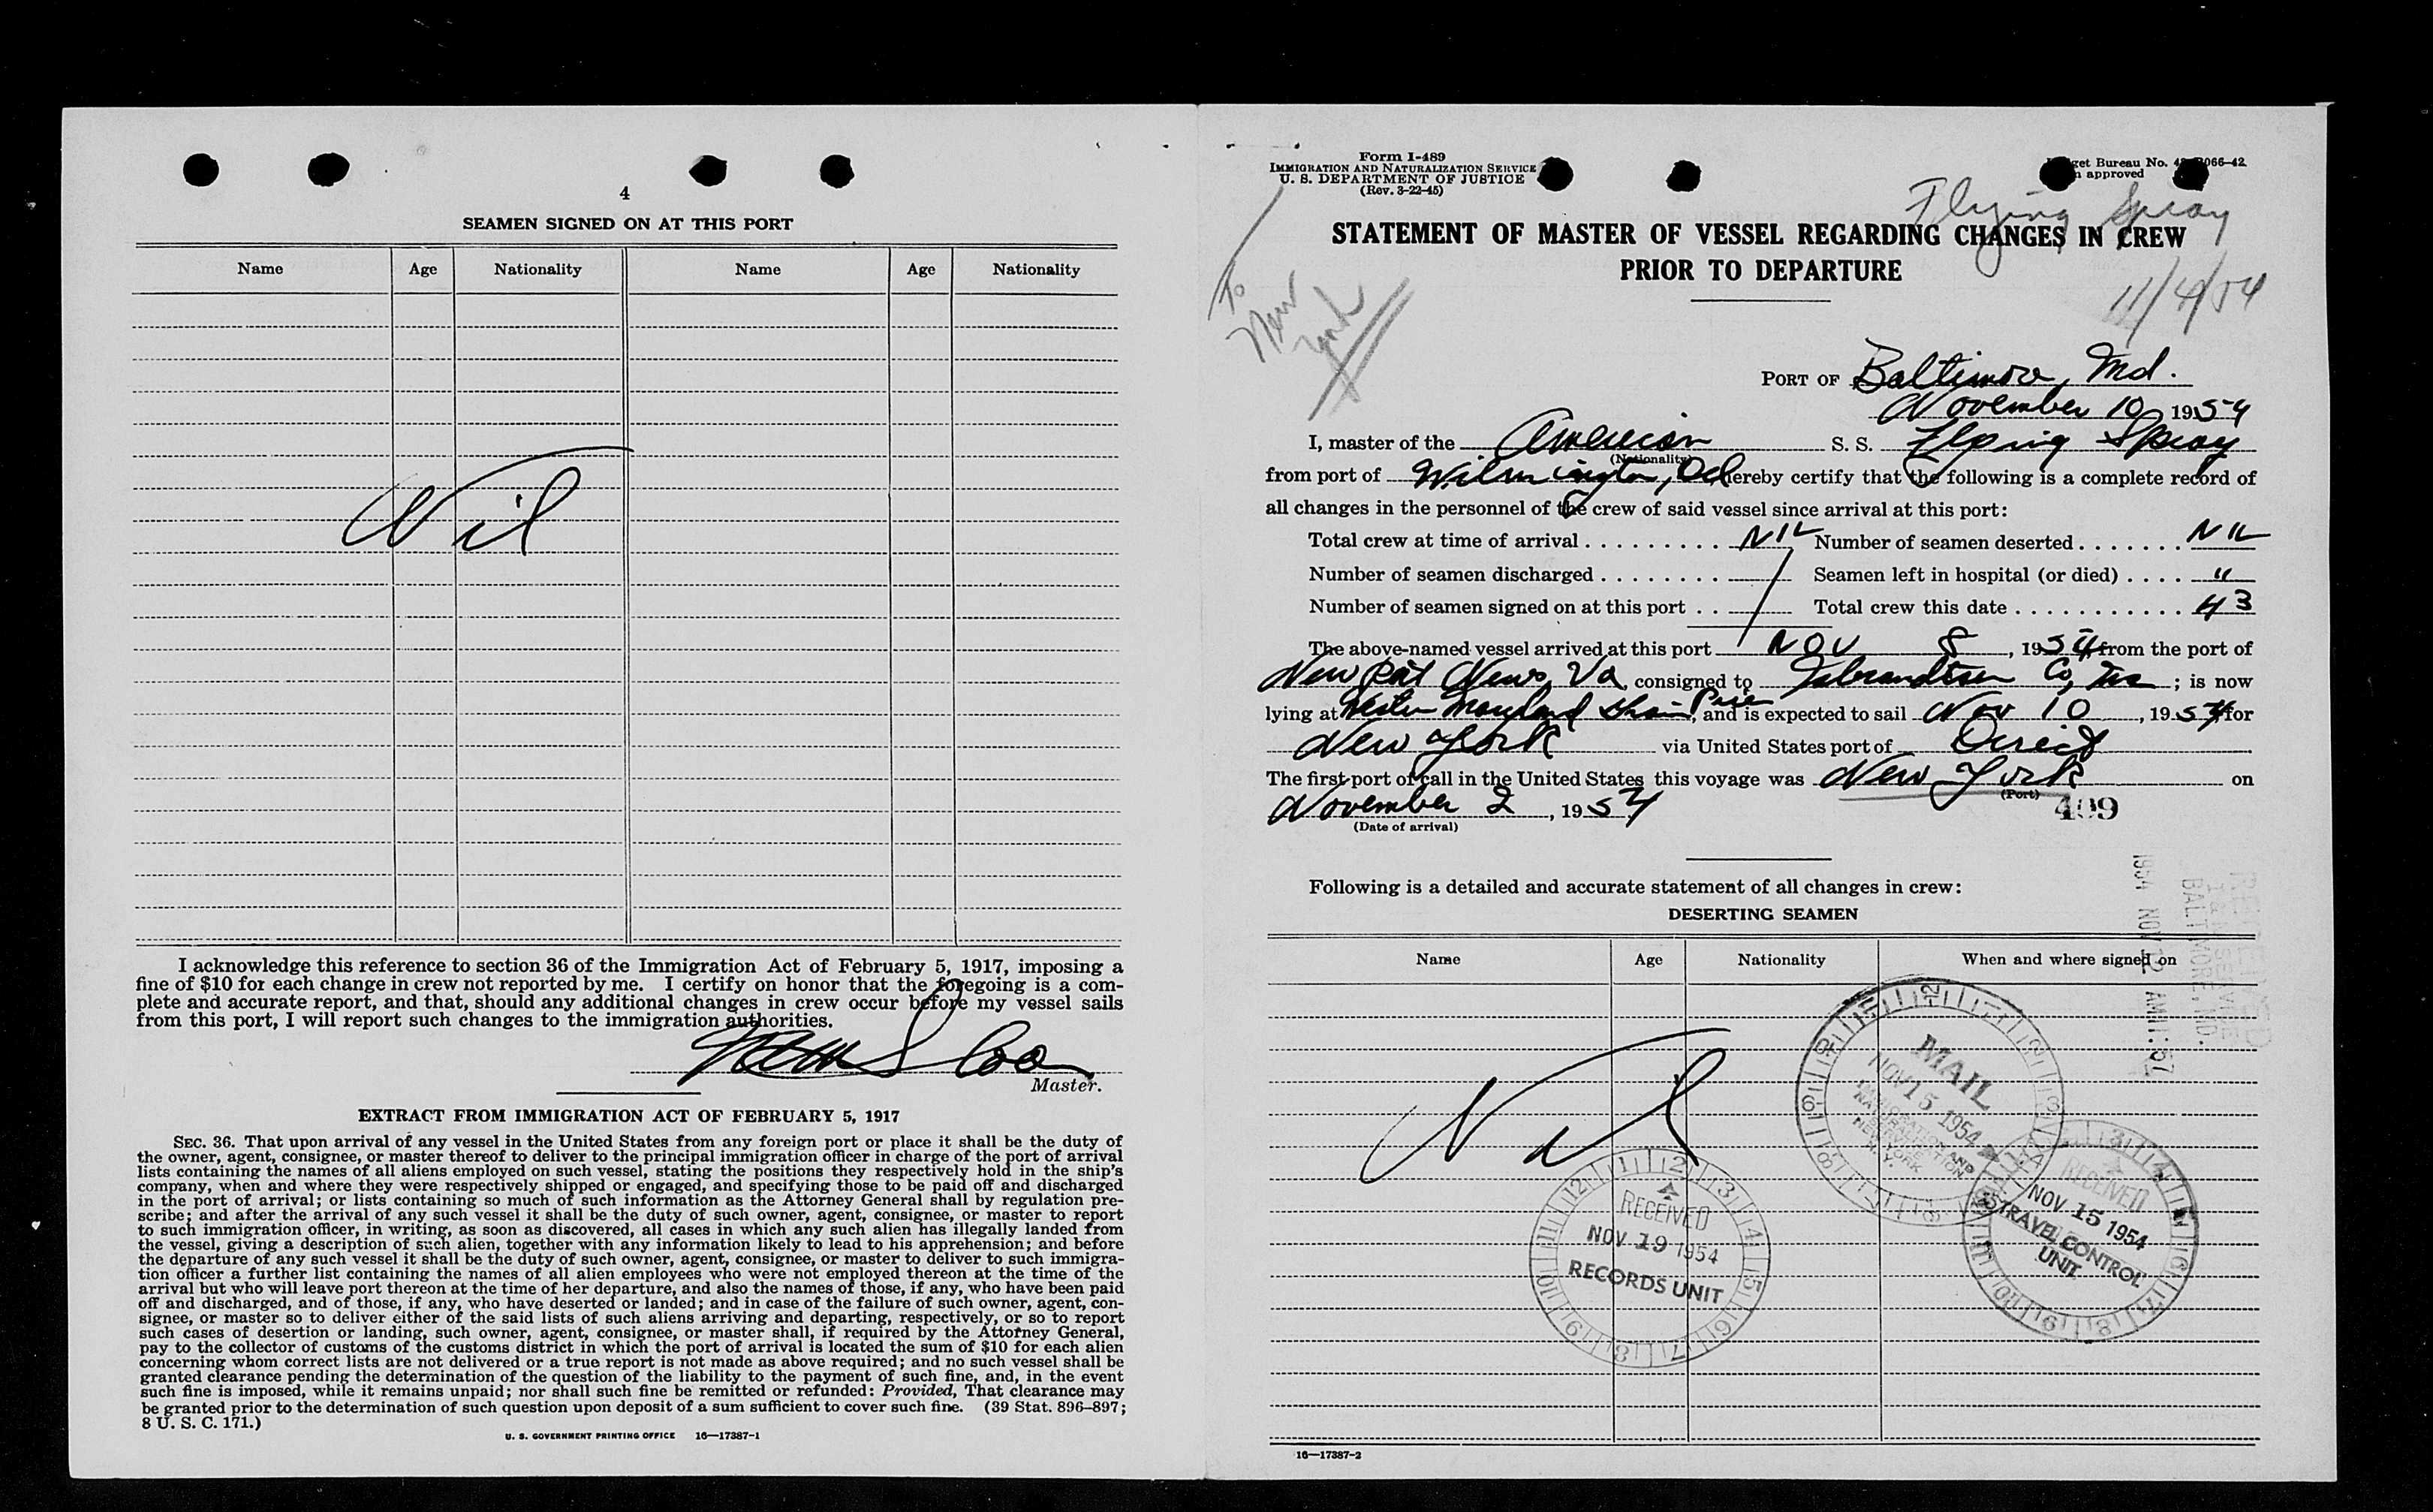 4
SEAMEN SIGNED ON AT THIS PORT
Name Age Nationality Name Age Nationality
Nil
I acknowledge this reference to section 36 of the Immigration Act of February 5, 1917, imposing a
fine of $10 for each change in crew not reported by me. I certify on honor that the foregoing is a com-
plete and accurate report, and that, should any additional changes in crew occur before my vessel sails
from this port, I will report such changes to the immigration authorities.
Master.
EXTRACT FROM IMMIGRATION ACT OF FEBRUARY 5, 1917
SEC. 36. That upon arrival of any vessel in the United States from any foreign port or place it shall be the duty of
the owner, agent, consignee, or master thereof to deliver to the principal immigration officer in charge of the port of arrival
lists containing the names of all aliens employed on such vessel, stating the positions they respectively hold in the ship's
company, when and where they were respectively shipped or engaged, and specifying those to be paid off and discharged
in the port of arrival; or lists containing so much of such information as the Attorney General shall by regulation pre-
scribe; and after the arrival of any such vessel it shall be the duty of such owner, agent, consignee, or master to report
to such immigration officer, in writing, as soon as discovered, all cases in which any such alien has illegally landed from
the vessel, giving a description of such alien, together with any information likely to lead to his apprehension; and before
the departure of any such vessel it shall be the duty of such owner, agent, consignee, or master to deliver to such immigra-
tion officer a further list containing the names of all alien employees who were not employed thereon at the time of the
arrival but who will leave port thereon at the time of her departure, and also the names of those, if any, who have been paid
off and discharged, and of those, if any, who have deserted or landed; and in case of the failure of such owner, agent, con-
signee, or master so to deliver either of the said lists of such aliens arriving and departing, respectively, or so to report
such cases of desertion or landing, such owner, agent, consignee, or master shall, if required by the Attorney General,
pay to the collector of customs of the customs district in which the port of arrival is located the sum of $10 for each alien
concerning whom correct lists are not delivered or a true report is not made as above required; and no such vessel shall be
granted clearance pending the determination of the question of the liability to the payment of such fine, and, in the event
such fine is imposed, while it remains unpaid; nor shall such fine be remitted or refunded: Provided, That clearance may
be granted prior to the determination of such question upon deposit of a sum sufficient to cover such fine. (39 Stat. 896–897;
8 U. S. C. 171.)
U. S. GOVERNMENT PRINTING OFFICE 16—17387-1
Form I-489
IMMIGRATION AND NATURALIZATION SERVICE
U. S. DEPARTMENT OF JUSTICE
(Rev. 3-22-45)
Bureau No. 066-42
approved
Flying Spray
STATEMENT OF MASTER OF VESSEL REGARDING CHANGES IN CREW
PRIOR TO DEPARTURE
To
New
York
11/4/54
PORT OF Baltimore, Md.
November 10, 1954
I, master of the American S. S. Flying Spray
(Nationality)
from port of Wilmington, Del hereby certify that the following is a complete record of
all changes in the personnel of the crew of said vessel since arrival at this port:
Total crew at time of arrival . . . . . . . . . . NIL Number of seamen deserted . . . . . . . NIL
Number of seamen discharged . . . . . . . . Seamen left in hospital (or died) . . . . "
Number of seamen signed on at this port . . Total crew this date . . . . . . . . . . . . 43
The above-named vessel arrived at this port NOV 8, 1954, from the port of
New Port News, Va, consigned to Isbrandtsen Co, Inc; is now
lying at Western Maryland Grain Pier, and is expected to sail Nov 10, 1954 for
New York via United States port of Direct
The first port of call in the United States this voyage was New York on
(Port)
November 2, 1954
(Date of arrival)
409
Following is a detailed and accurate statement of all changes in crew:
DESERTING SEAMEN
Name Age Nationality When and where signed on
Nil
RECEIVED
I. & N. SERVICE
BALTIMORE, MD.
1954 NOV 12 AM 11:57
MAIL
NOV 15 1954
IMMIGRATION AND
NATURALIZATION
SERVICE
NEW YORK
N. Y.
RECEIVED
NOV 15 1954
TRAVEL CONTROL
UNIT
RECEIVED
NOV 19 1954
RECORDS UNIT
16—17387-2